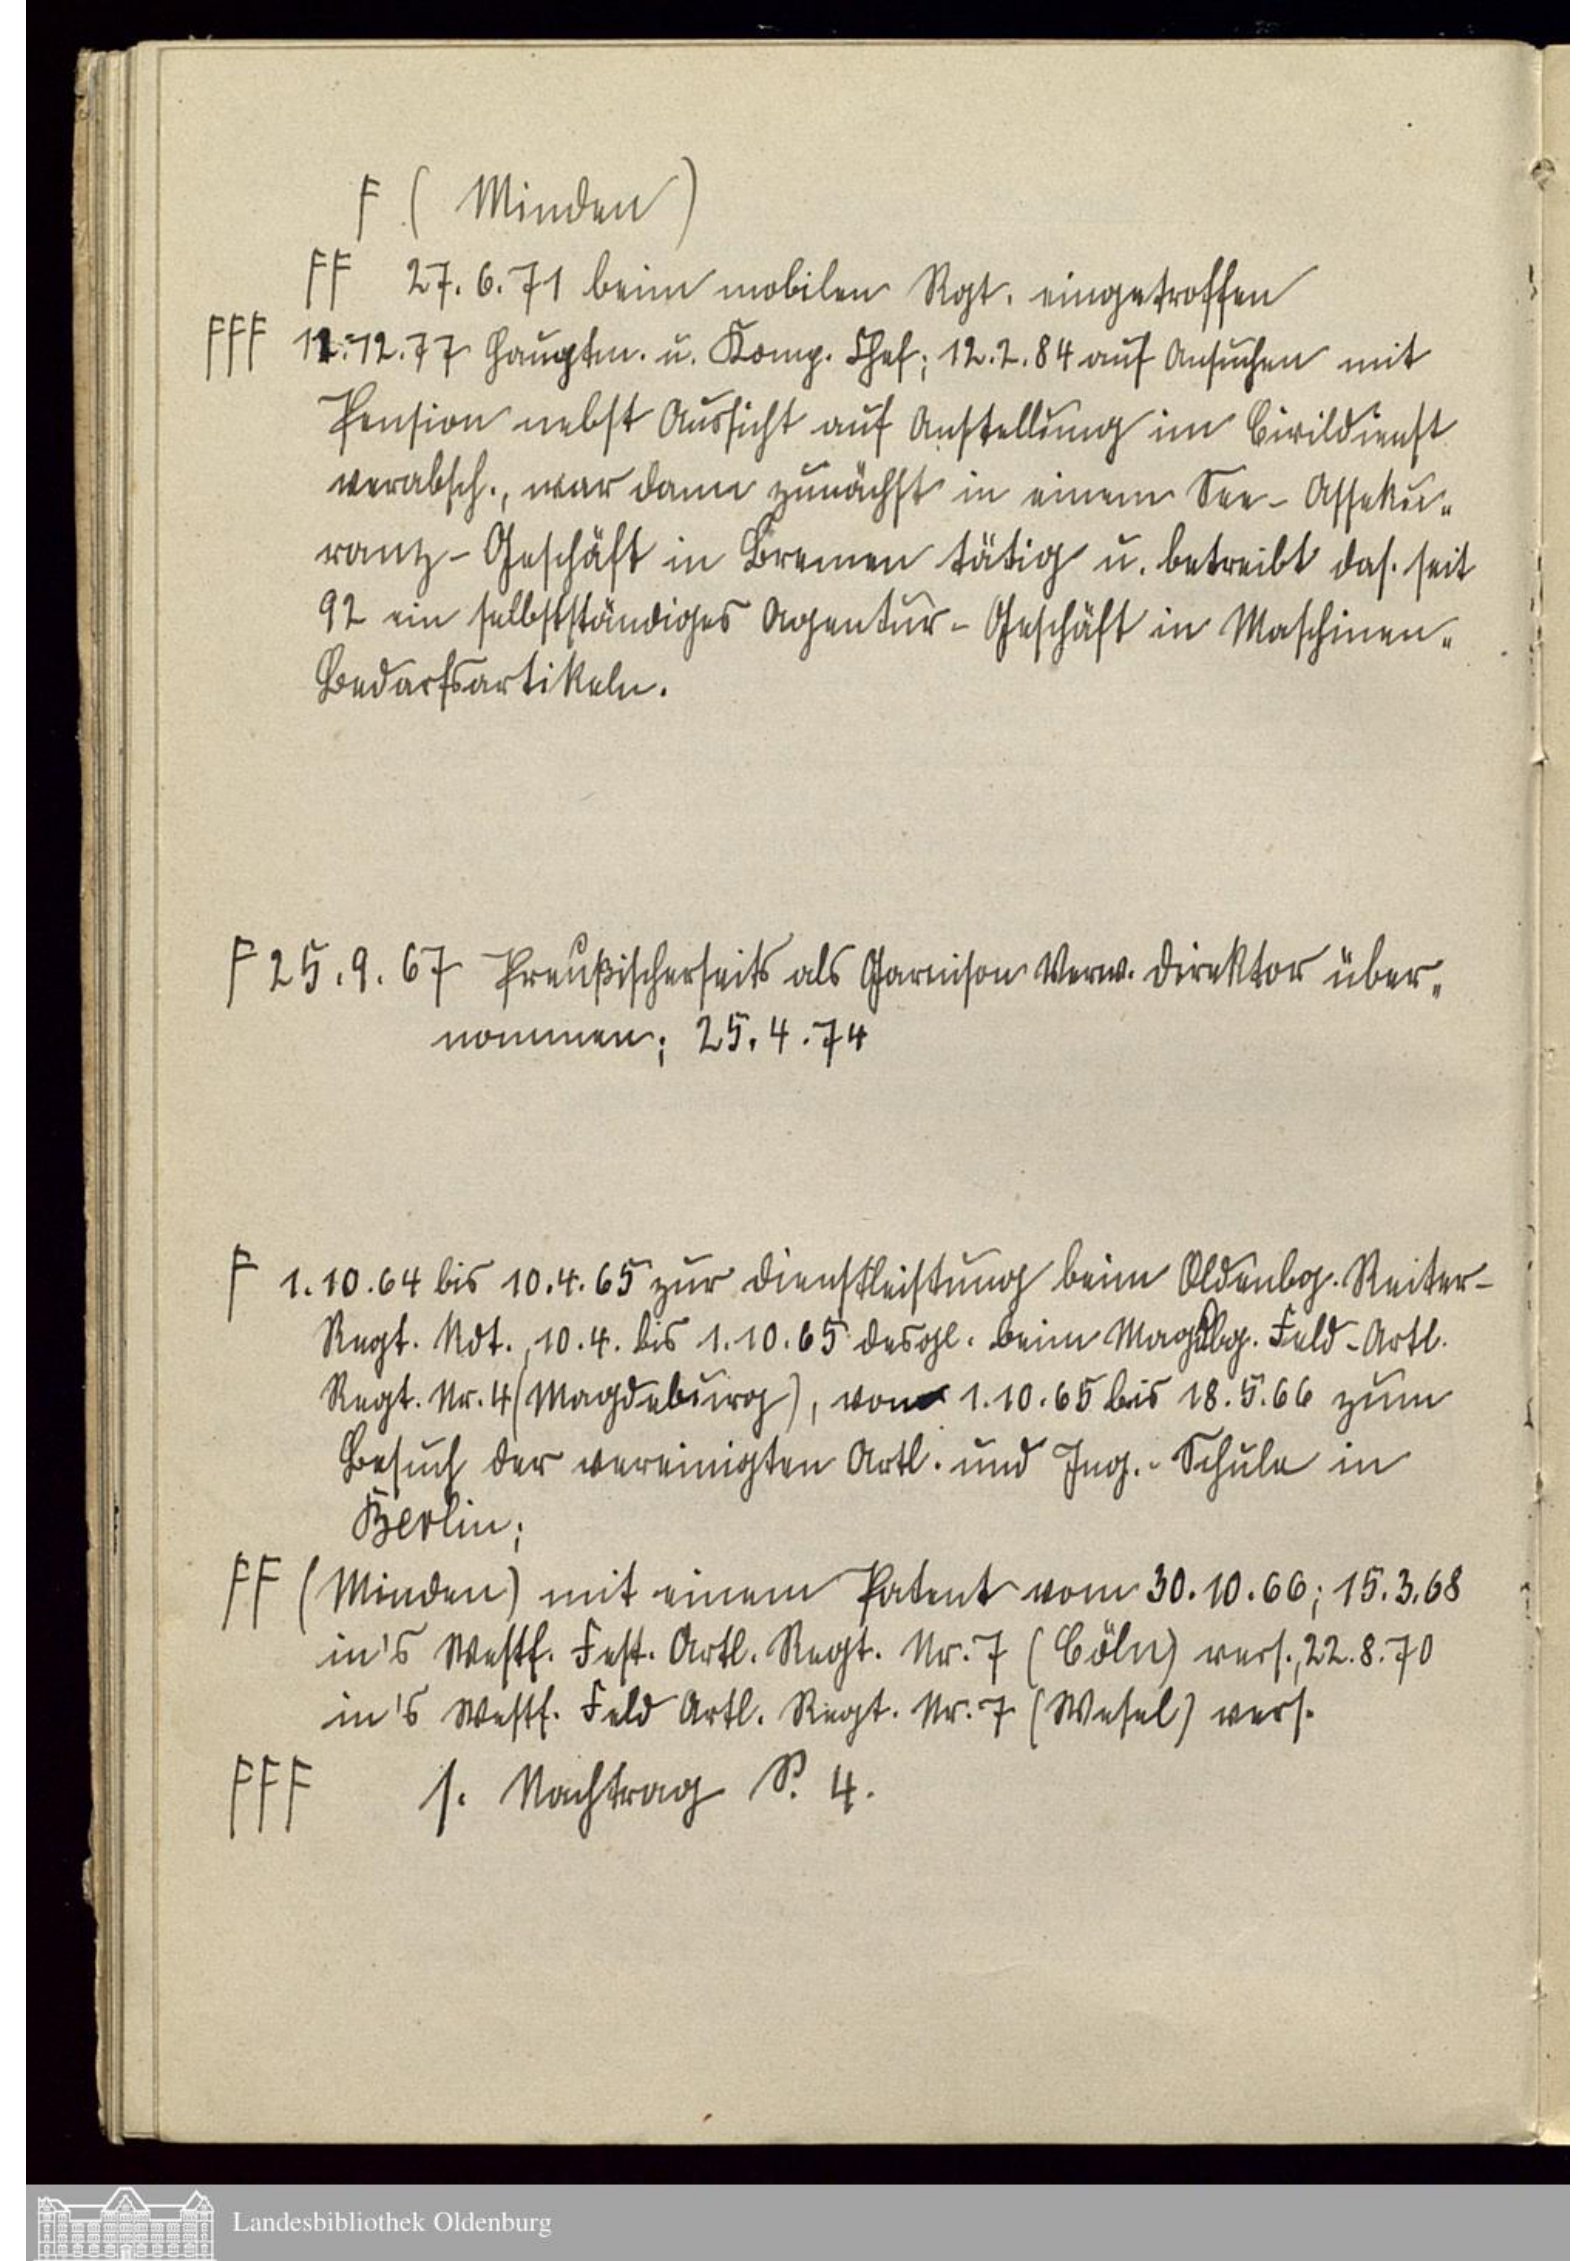 F (Minden)
FF 27.6.71 beim mobilen Rgt. eingetroffen
FFF 12.12.77 Hauptm. u. Komp. Chef; 12.2.84 auf Ansuchen mit
Pension nebst Aussicht auf Anstellung im Civildienst
verabsch., war dann zunächst in einem See-Asseku-
ranz-Geschäft in Bremen tätig u. betreibt das. seit
92 ein selbstständiges Agentur-Geschäft in Maschinen-
Bedarfsartikeln.
F 25.9.67 Preußischerseits als Garnison Verw. Direktor über-
nommen; 25.4.74
F 1.10.64 bis 10.4.65 zur Dienstleistung beim Oldenbg. Reiter-
Regt. Kdt., 10.4. bis 1.10.65 desgl. beim Magdbg. Feld-Artl.
Regt. Nr. 4 (Magdeburg), vom 1.10.65 bis 18.5.66 zum
Besuch der vereinigten Artl. und Ing.-Schule in
Berlin;
FF (Minden) mit einem Patent vom 30.10.66; 15.3.68
in's Westf. Fest. Artl. Regt. Nr. 7 (Cöln) vers., 22.8.70
in's Westf. Feld Artl. Regt. Nr. 7 (Wesel) vers.
FFF s. Nachtrag S. 4.
Landesbibliothek Oldenburg